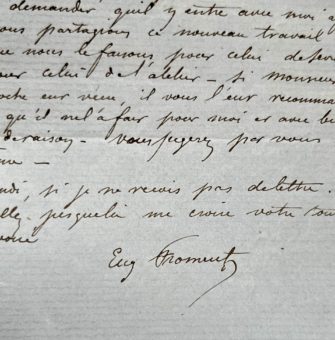 demander qu'il y entre avec moi
ous partagions ce nouveau travail
e nous le faisons pour celui de
our celui de l'atelier – si monsieur
oche eur veut, il vous l'eur recomma
qu'il ne l'a fait pour moi et avec bi
de raison – vous jugerez par vous
me –
ndi, si je ne recois pas de lettre
me croire votre tou
voué
Eug Froment